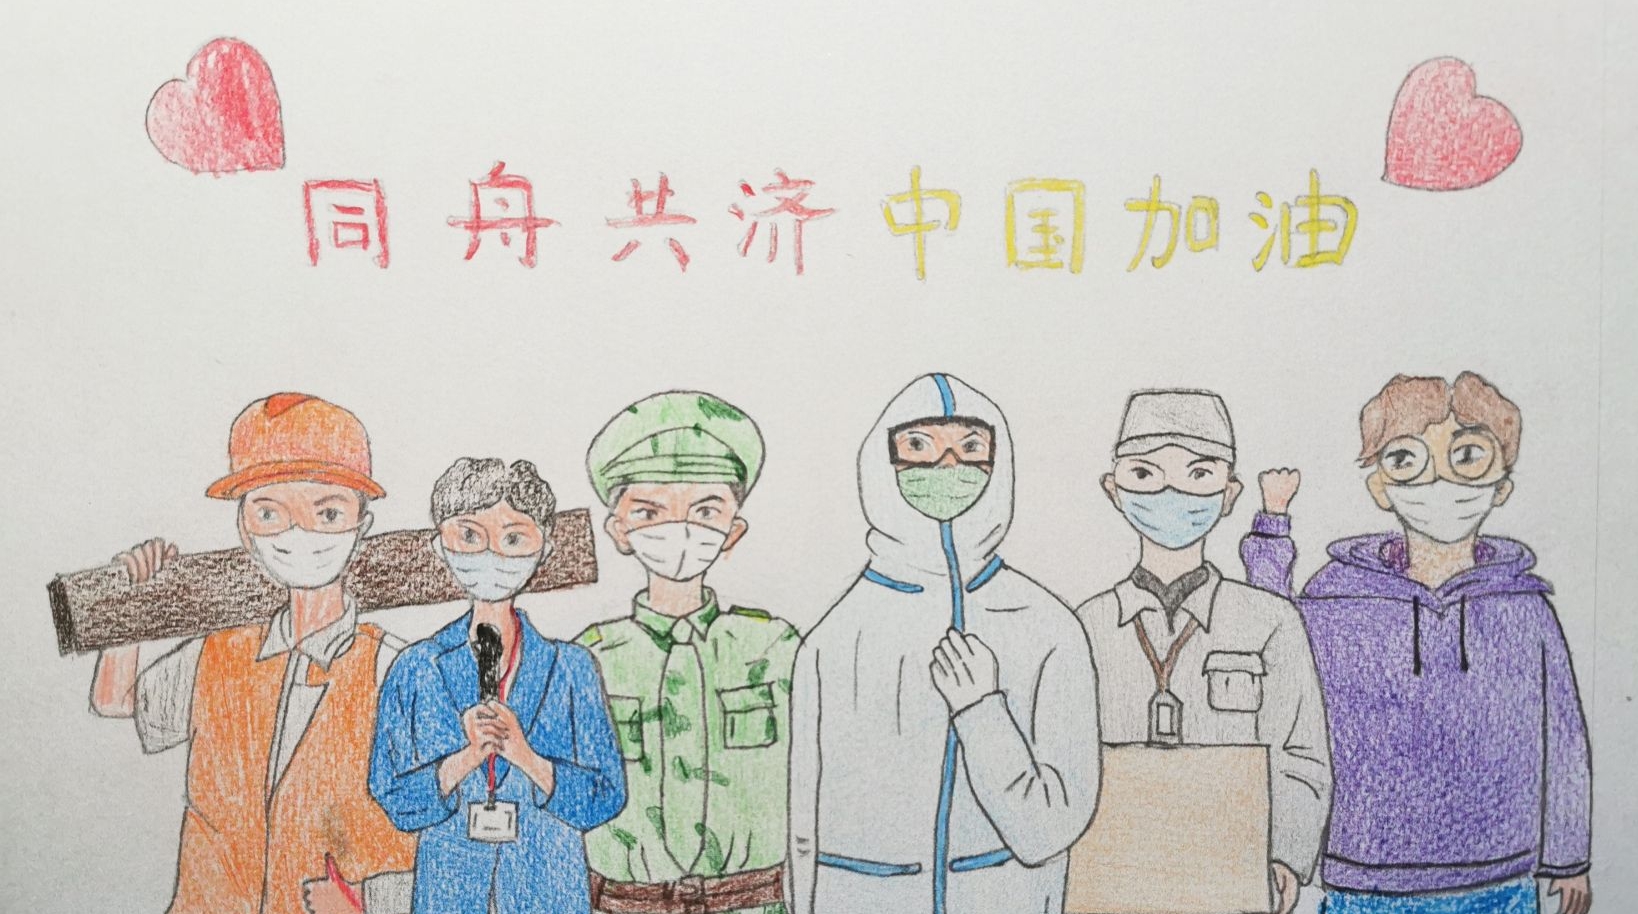 同舟共济中国加油